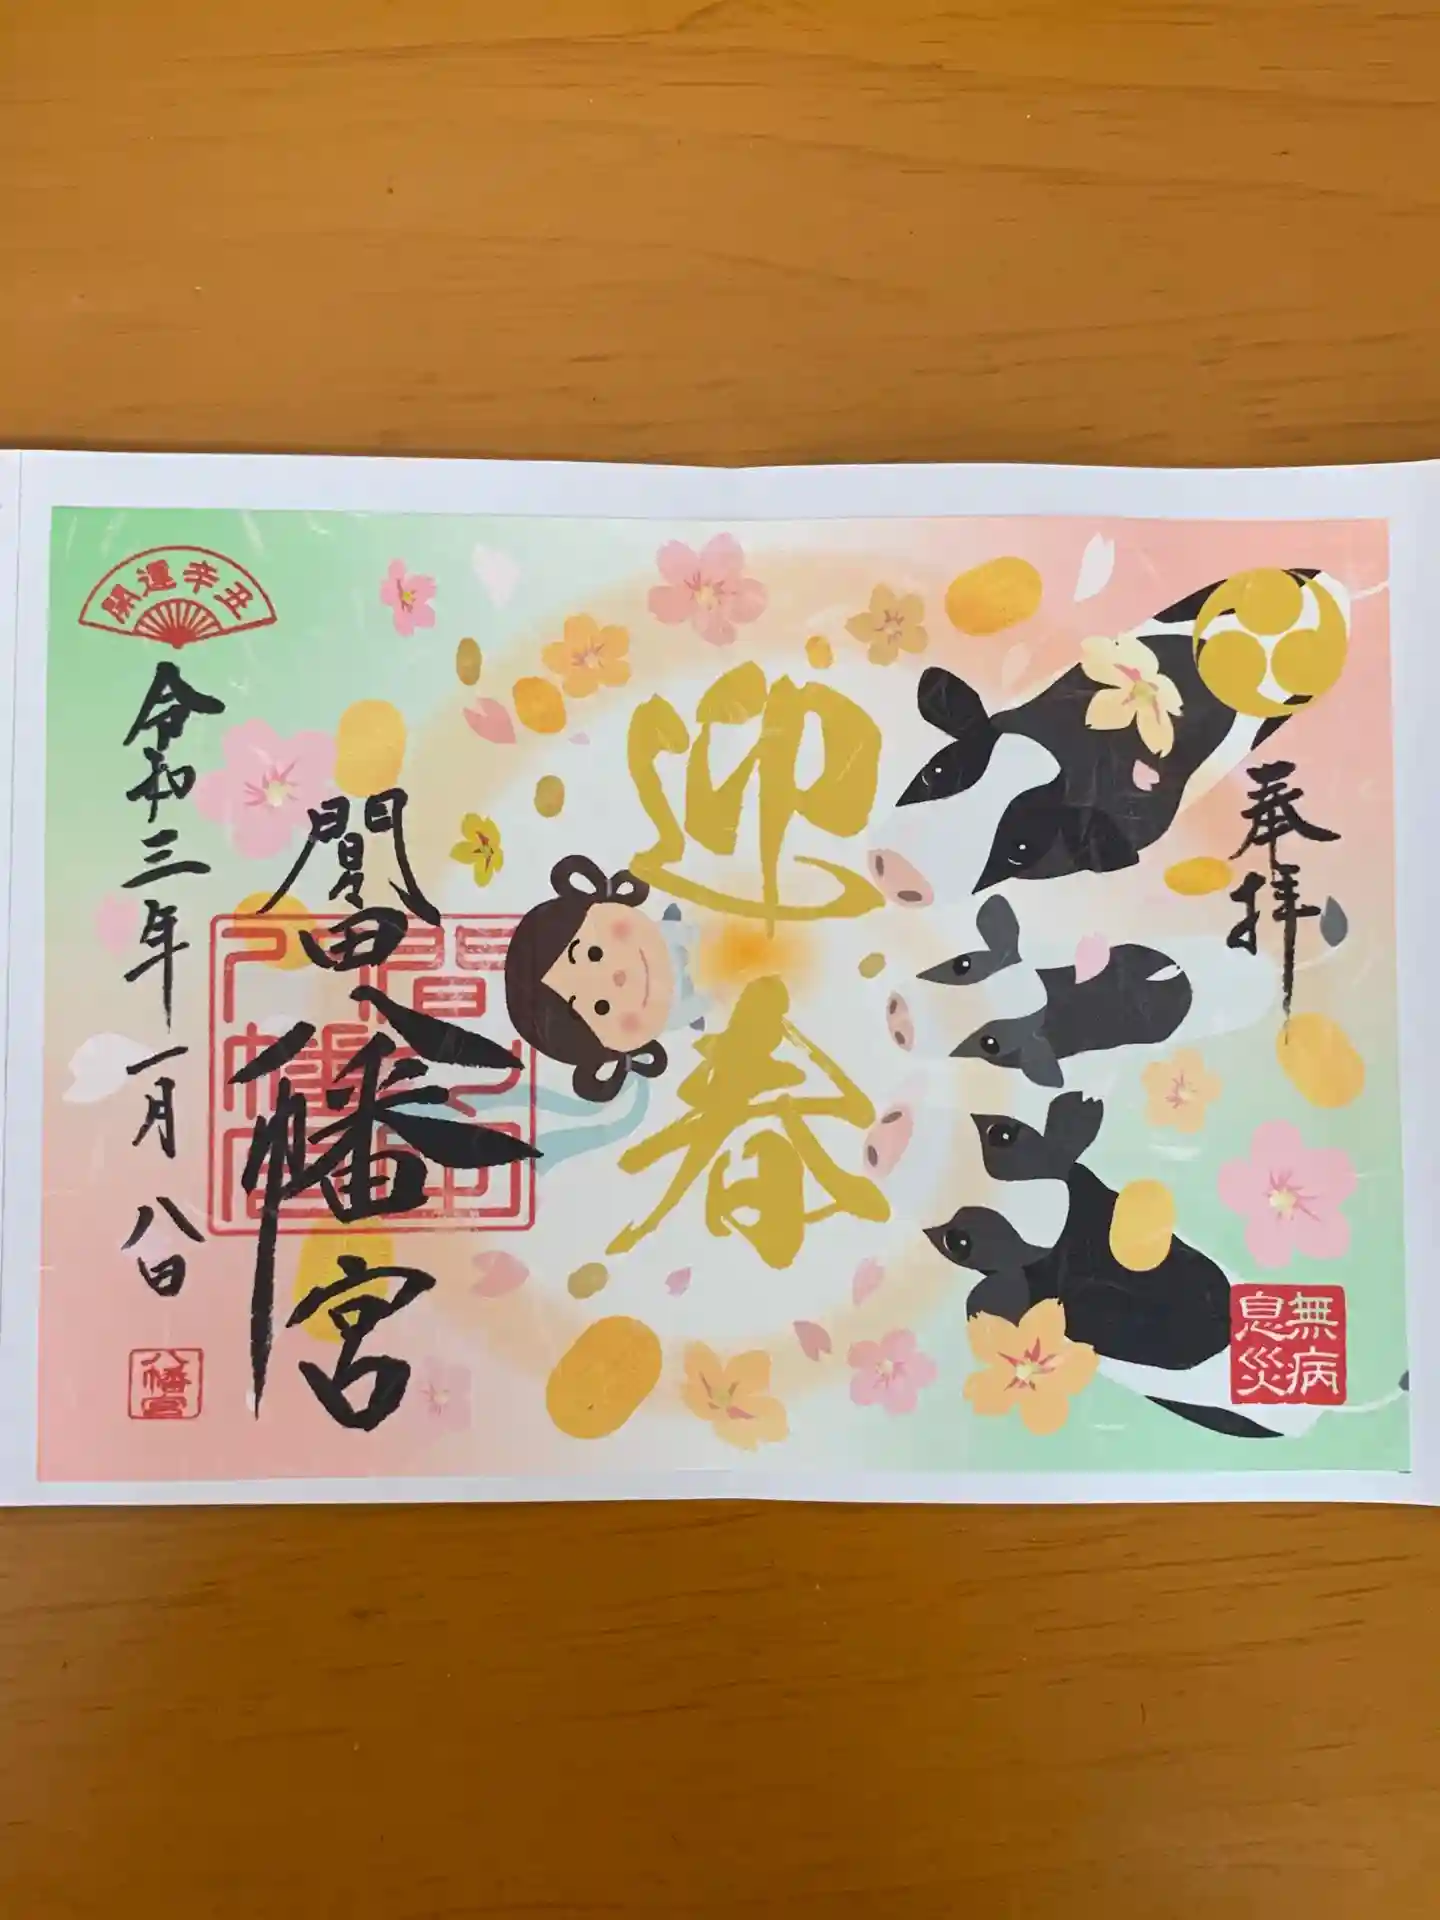 奉拝
無病
息災
迎春
間々田
八幡宮
開運辛丑
令和三年一月八日
八幡宮